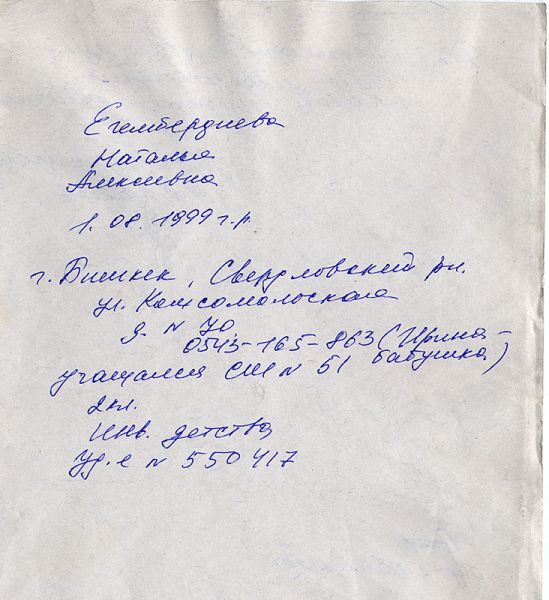 Егембердиева
Наталья
Алексеевна
1. 08. 1999 г.р.
г. Бишкек, Свердловский рн.
ул. Комсомольская
д. N 70.
0543-165-863 (Ирина-
учащаяся СШ N 51 бабушка)
2 кл.
инв. детства
Уд. е N 550417